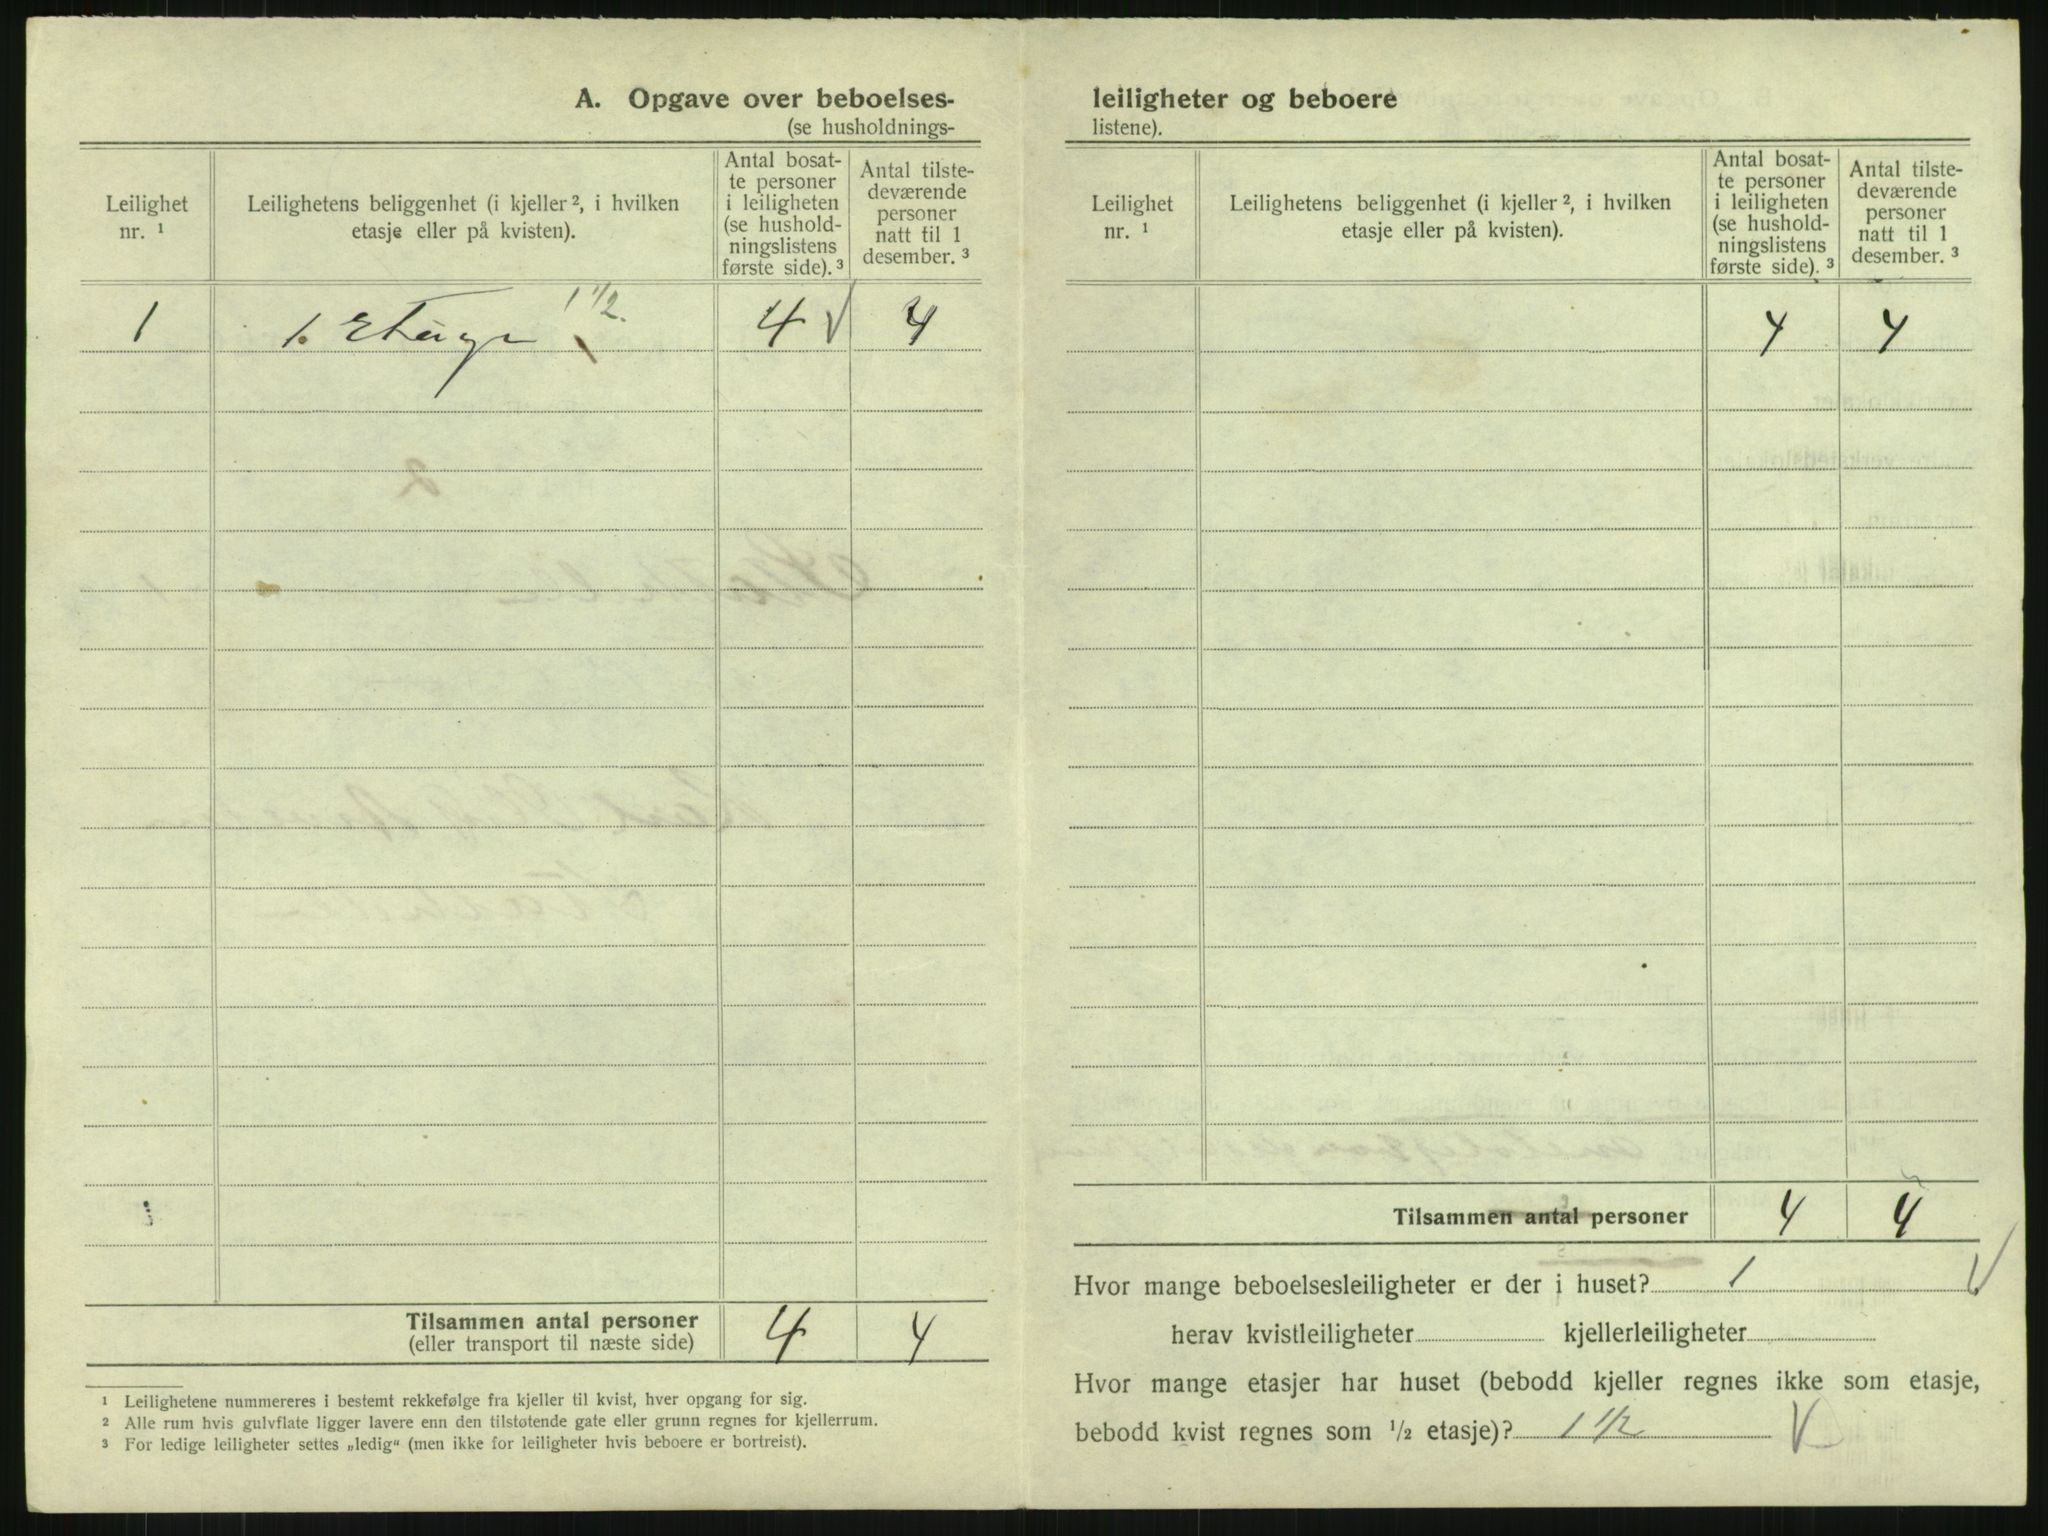 A. Opgave over beboelses-
(se husholdnings-
Leilighet
nr. ¹
Leilighetens beliggenhet (i kjeller ², i hvilken
etasje eller på kvisten).
Antal bosat-
te personer
i leiligheten
(se hushold-
ningslistens
første side). ³
Antal tilste-
deværende
personer
natt til 1
desember. ³
1 1. Etage 1 1/2. 4 √ 4
Tilsammen antal personer 4 4
(eller transport til næste side)
¹ Leilighetene nummereres i bestemt rekkefølge fra kjeller til kvist, hver opgang for sig.
² Alle rum hvis gulvflate ligger lavere enn den tilstøtende gate eller grunn regnes for kjellerrum.
³ For ledige leiligheter settes „ledig“ (men ikke for leiligheter hvis beboere er bortreist).
leiligheter og beboere
listene).
Leilighet
nr. ¹
Leilighetens beliggenhet (i kjeller ², i hvilken
etasje eller på kvisten).
Antal bosat-
te personer
i leiligheten
(se hushold-
ningslistens
første side). ³
Antal tilste-
deværende
personer
natt til 1
desember. ³
4 4
Tilsammen antal personer 4 4
Hvor mange beboelsesleiligheter er der i huset? 1 √
herav kvistleiligheter kjellerleiligheter
Hvor mange etasjer har huset (bebodd kjeller regnes ikke som etasje,
bebodd kvist regnes som 1/2 etasje)? 1 1/2 √